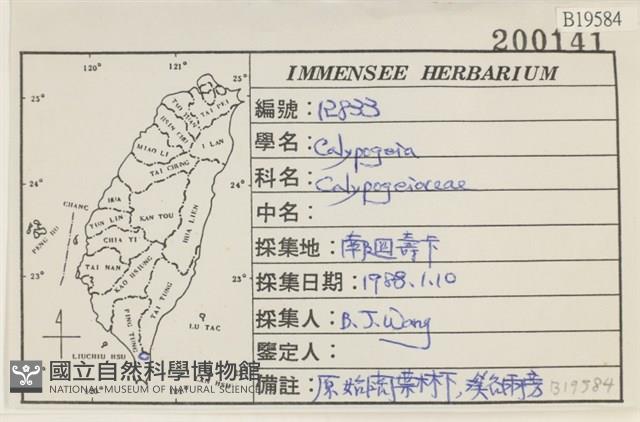 B19584
200141
IMMENSEE HERBARIUM
編號：12833
學名：Calypogeia
科名：Calypogeiaceae
中名：
採集地：南迴壽卡
採集日期：1988.1.10
採集人：B.J.Wang
鑒定人：
備註：原始闊葉林下，溪谷兩旁
B19584
120°
121°
25°
25°
24°
24°
23°
23°
TAI PEI
TAO YUAN
HSIN CHU
I LAN
MIAO LI
TAI CHUNG
CHANG
HUA
NAN TOU
HUA LIEN
YUN LIN
PENG HU
CHIA YI
TAI NAN
KAO HSIUNG
TAI TUNG
PING TUNG
LU TAO
LIUCHIU HSU
LAN HSU
國立自然科學博物館
NATIONAL MUSEUM OF NATURAL SCIENCE